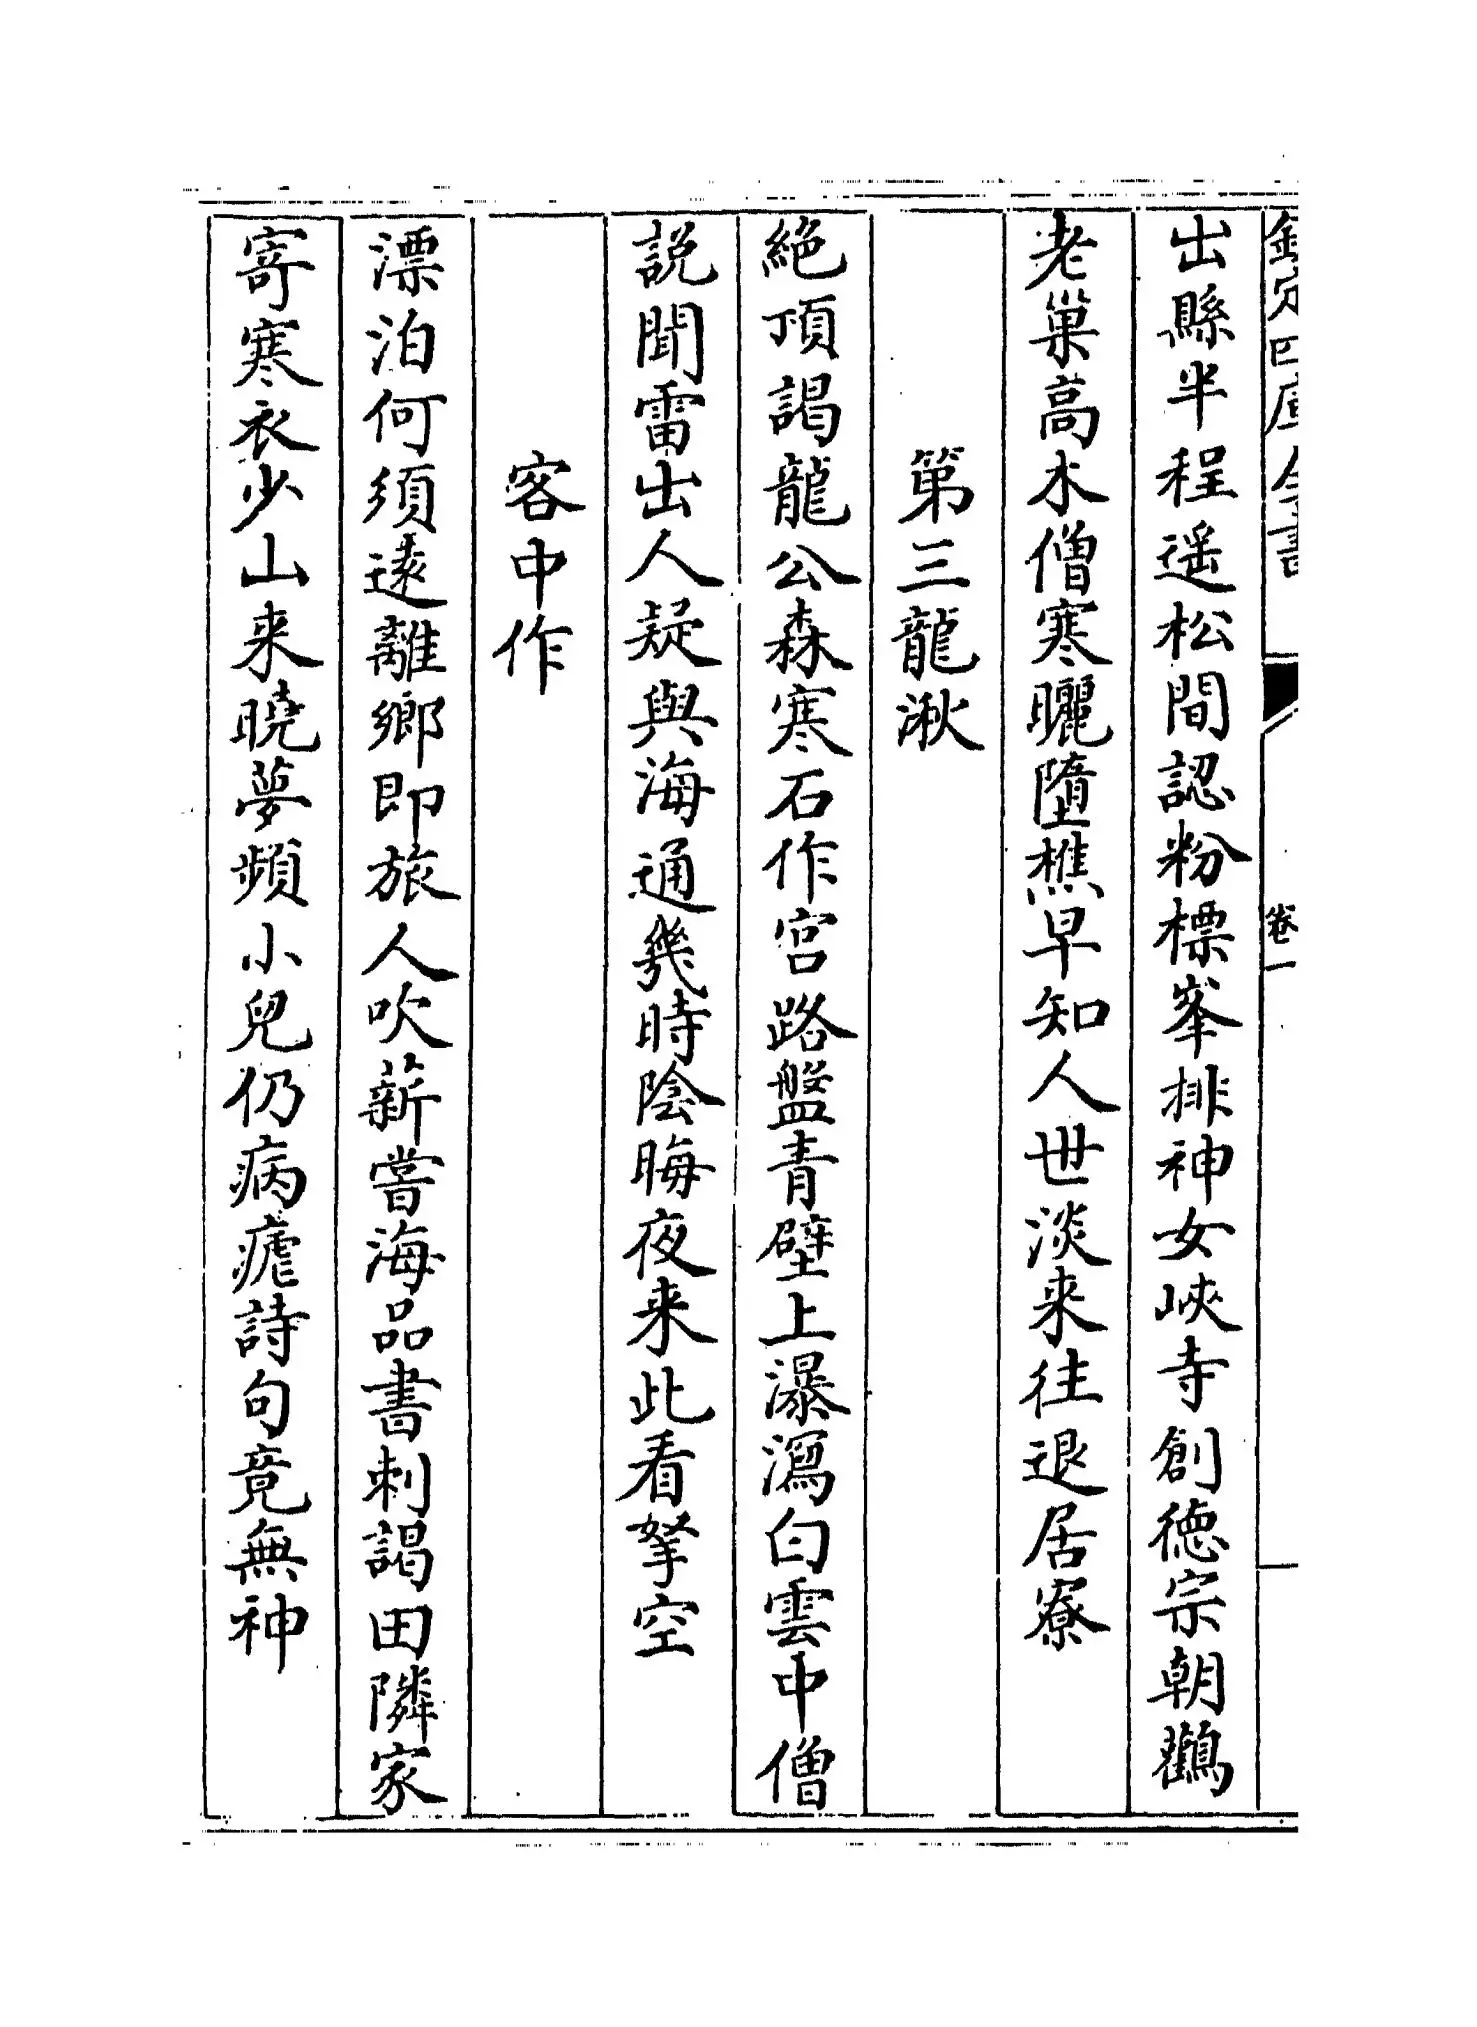 欽定四庫全書
卷一
出縣半程遥松間認粉標峯排神女峽寺創徳宗朝鸛
老巢髙木僧寒曬墮樵早知人世淡来往退居寮
第三龍湫
絶頂謁龍公森寒石作宫路盤青壁上瀑瀉白雲中僧
説聞雷出人疑與海通幾時陰晦夜来此看拏空
客中作
漂泊何須逺離鄉即旅人吹薪嘗海品書刺謁田隣家
寄寒衣少山来曉夢頻小兒仍病瘧詩句竟無神